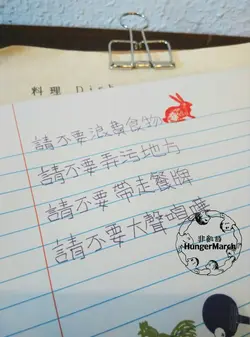 料理
請不要浪費食物
請不要弄污地方
請不要帶走餐牌
請不要大聲喧嘩
非飢語
HungerMarch